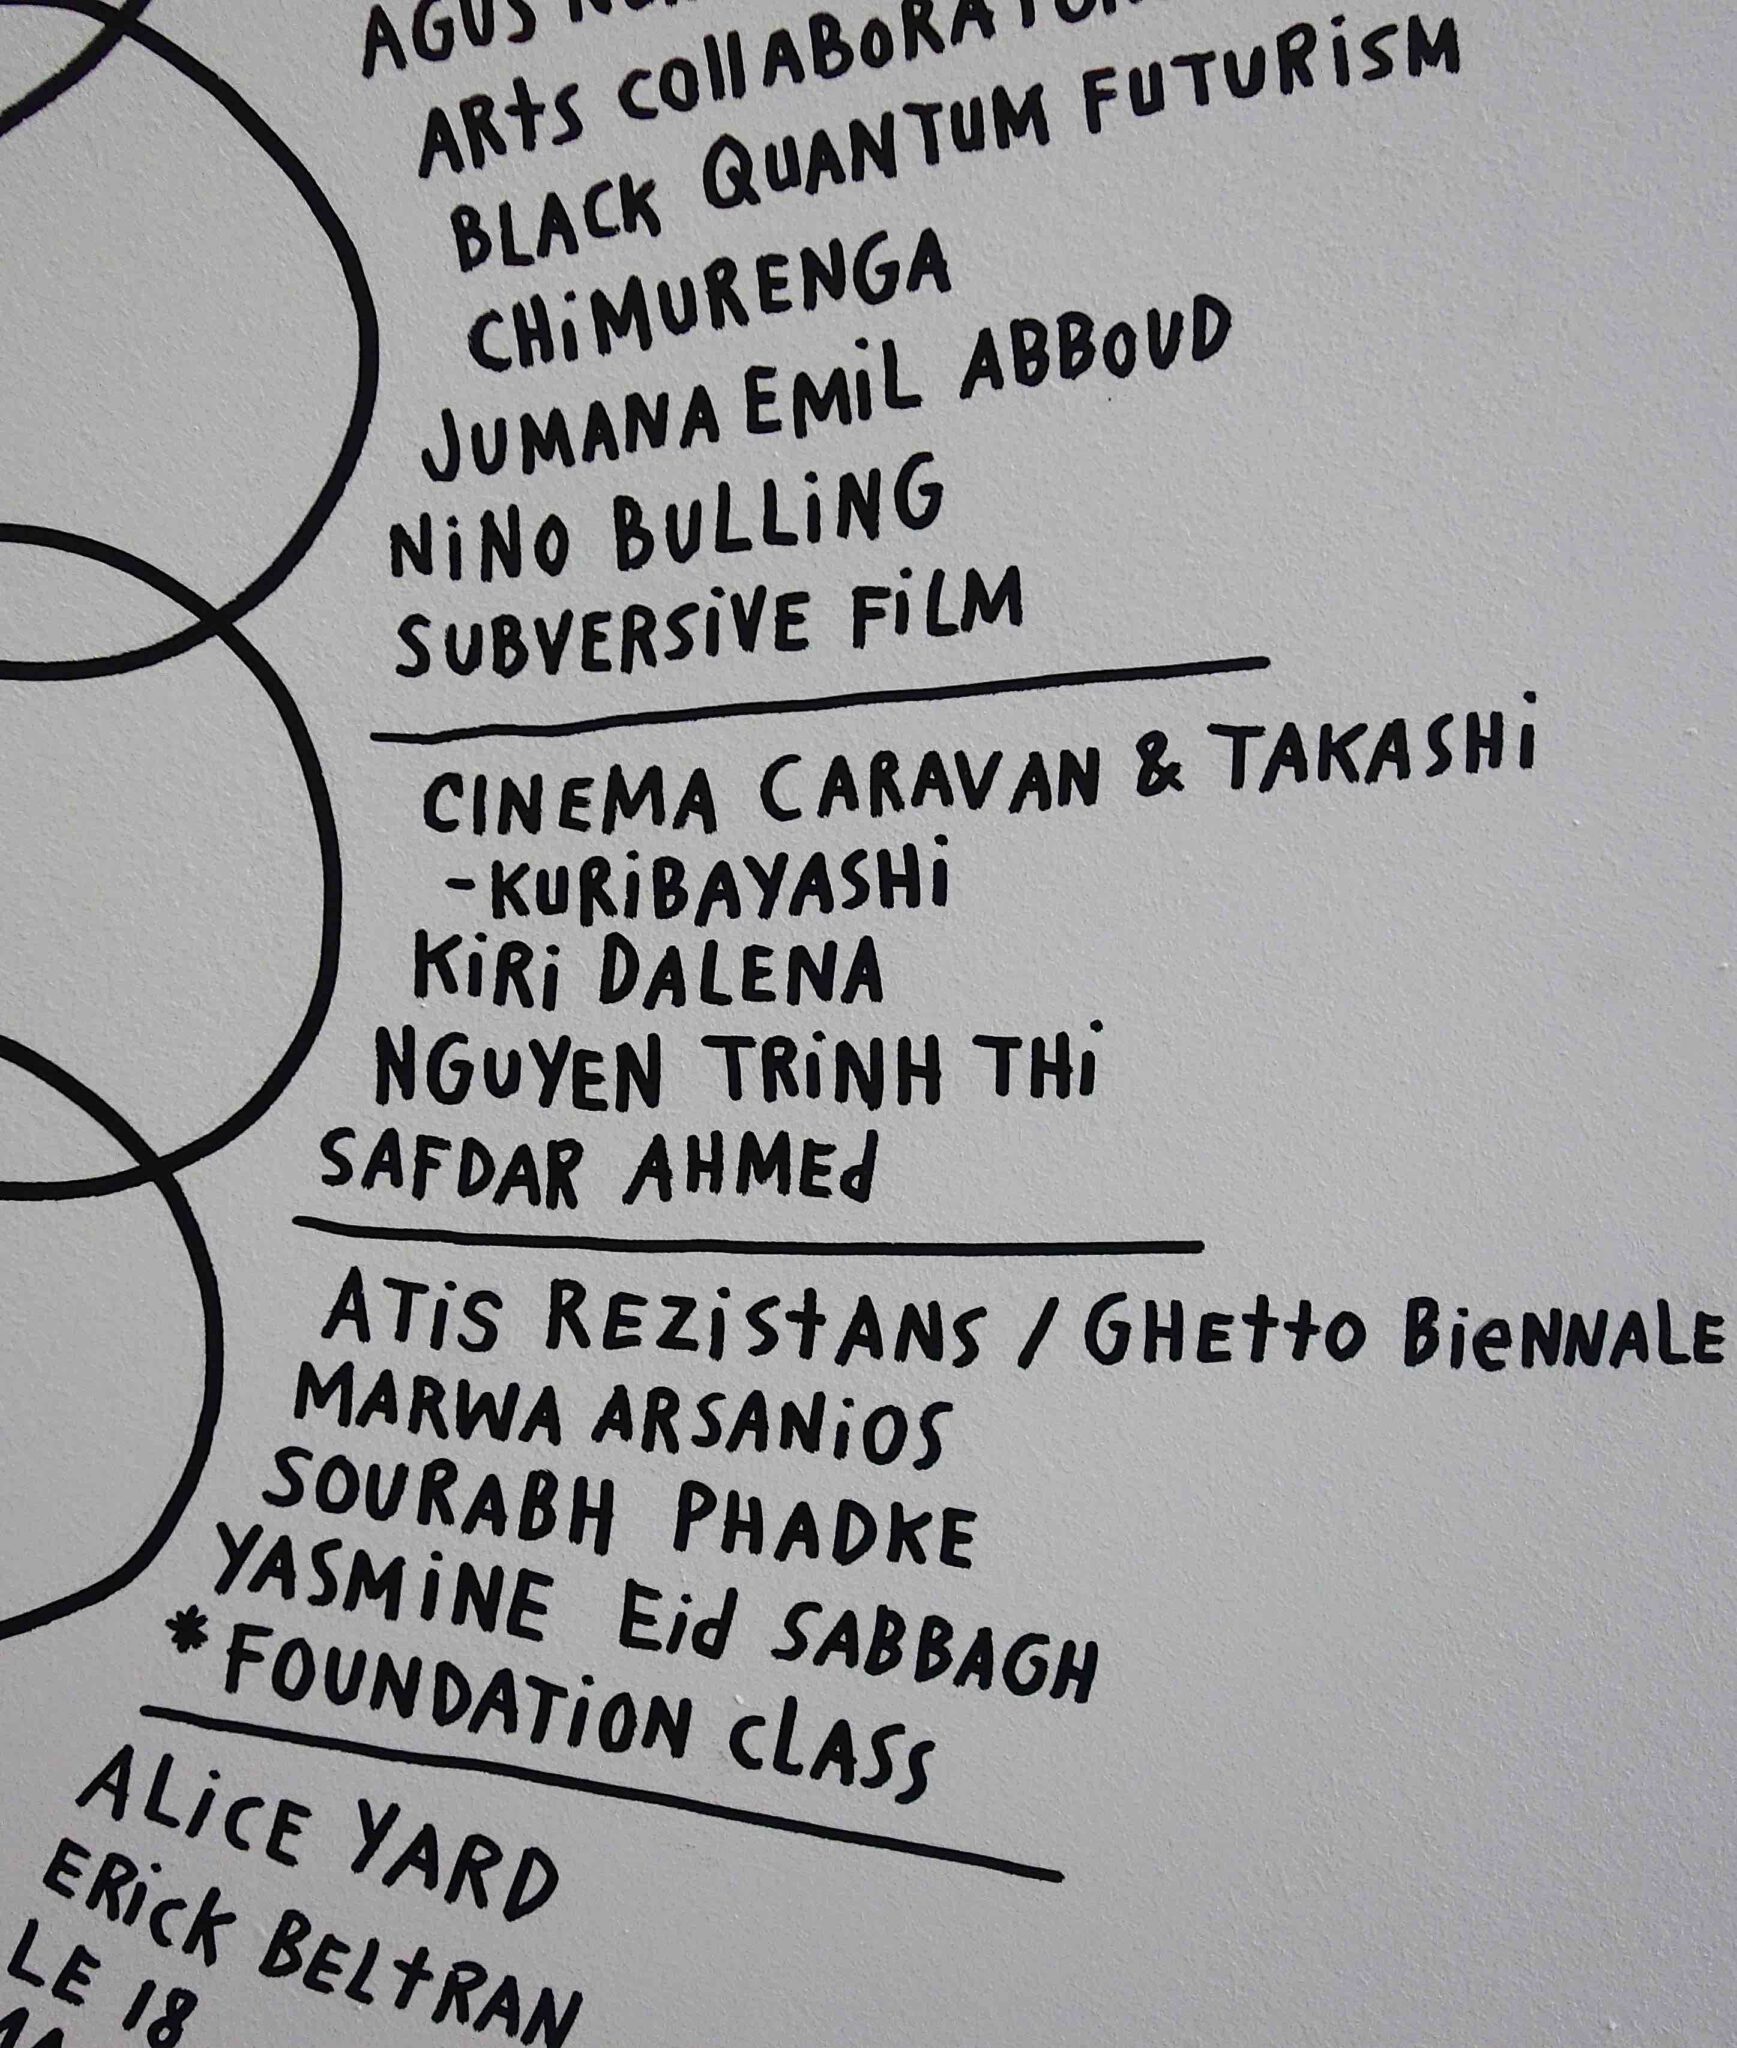 AGUS
ARts collABORATOR
BLACK QUANTUM FUTURiSM
CHiMURENGA
JUMANA EMiL ABBOUD
NiNO BULLiNG
SUBVERSiVE FiLM
CINEMA CARAVAN & TAKASHi
-KURiBAYASHi
KiRi DALENA
NGUYEN TRiNH THi
SAFDAR AHMEd
ATiS REZiStANS / GHEttO BieNNALE
MARWA ARSANiOS
SOURABH PHADKE
YASMiNE Eid SABBAGH
*FOUNDATiON clASS
ALiCE YARD
ERicK BELtRAN
LE 18